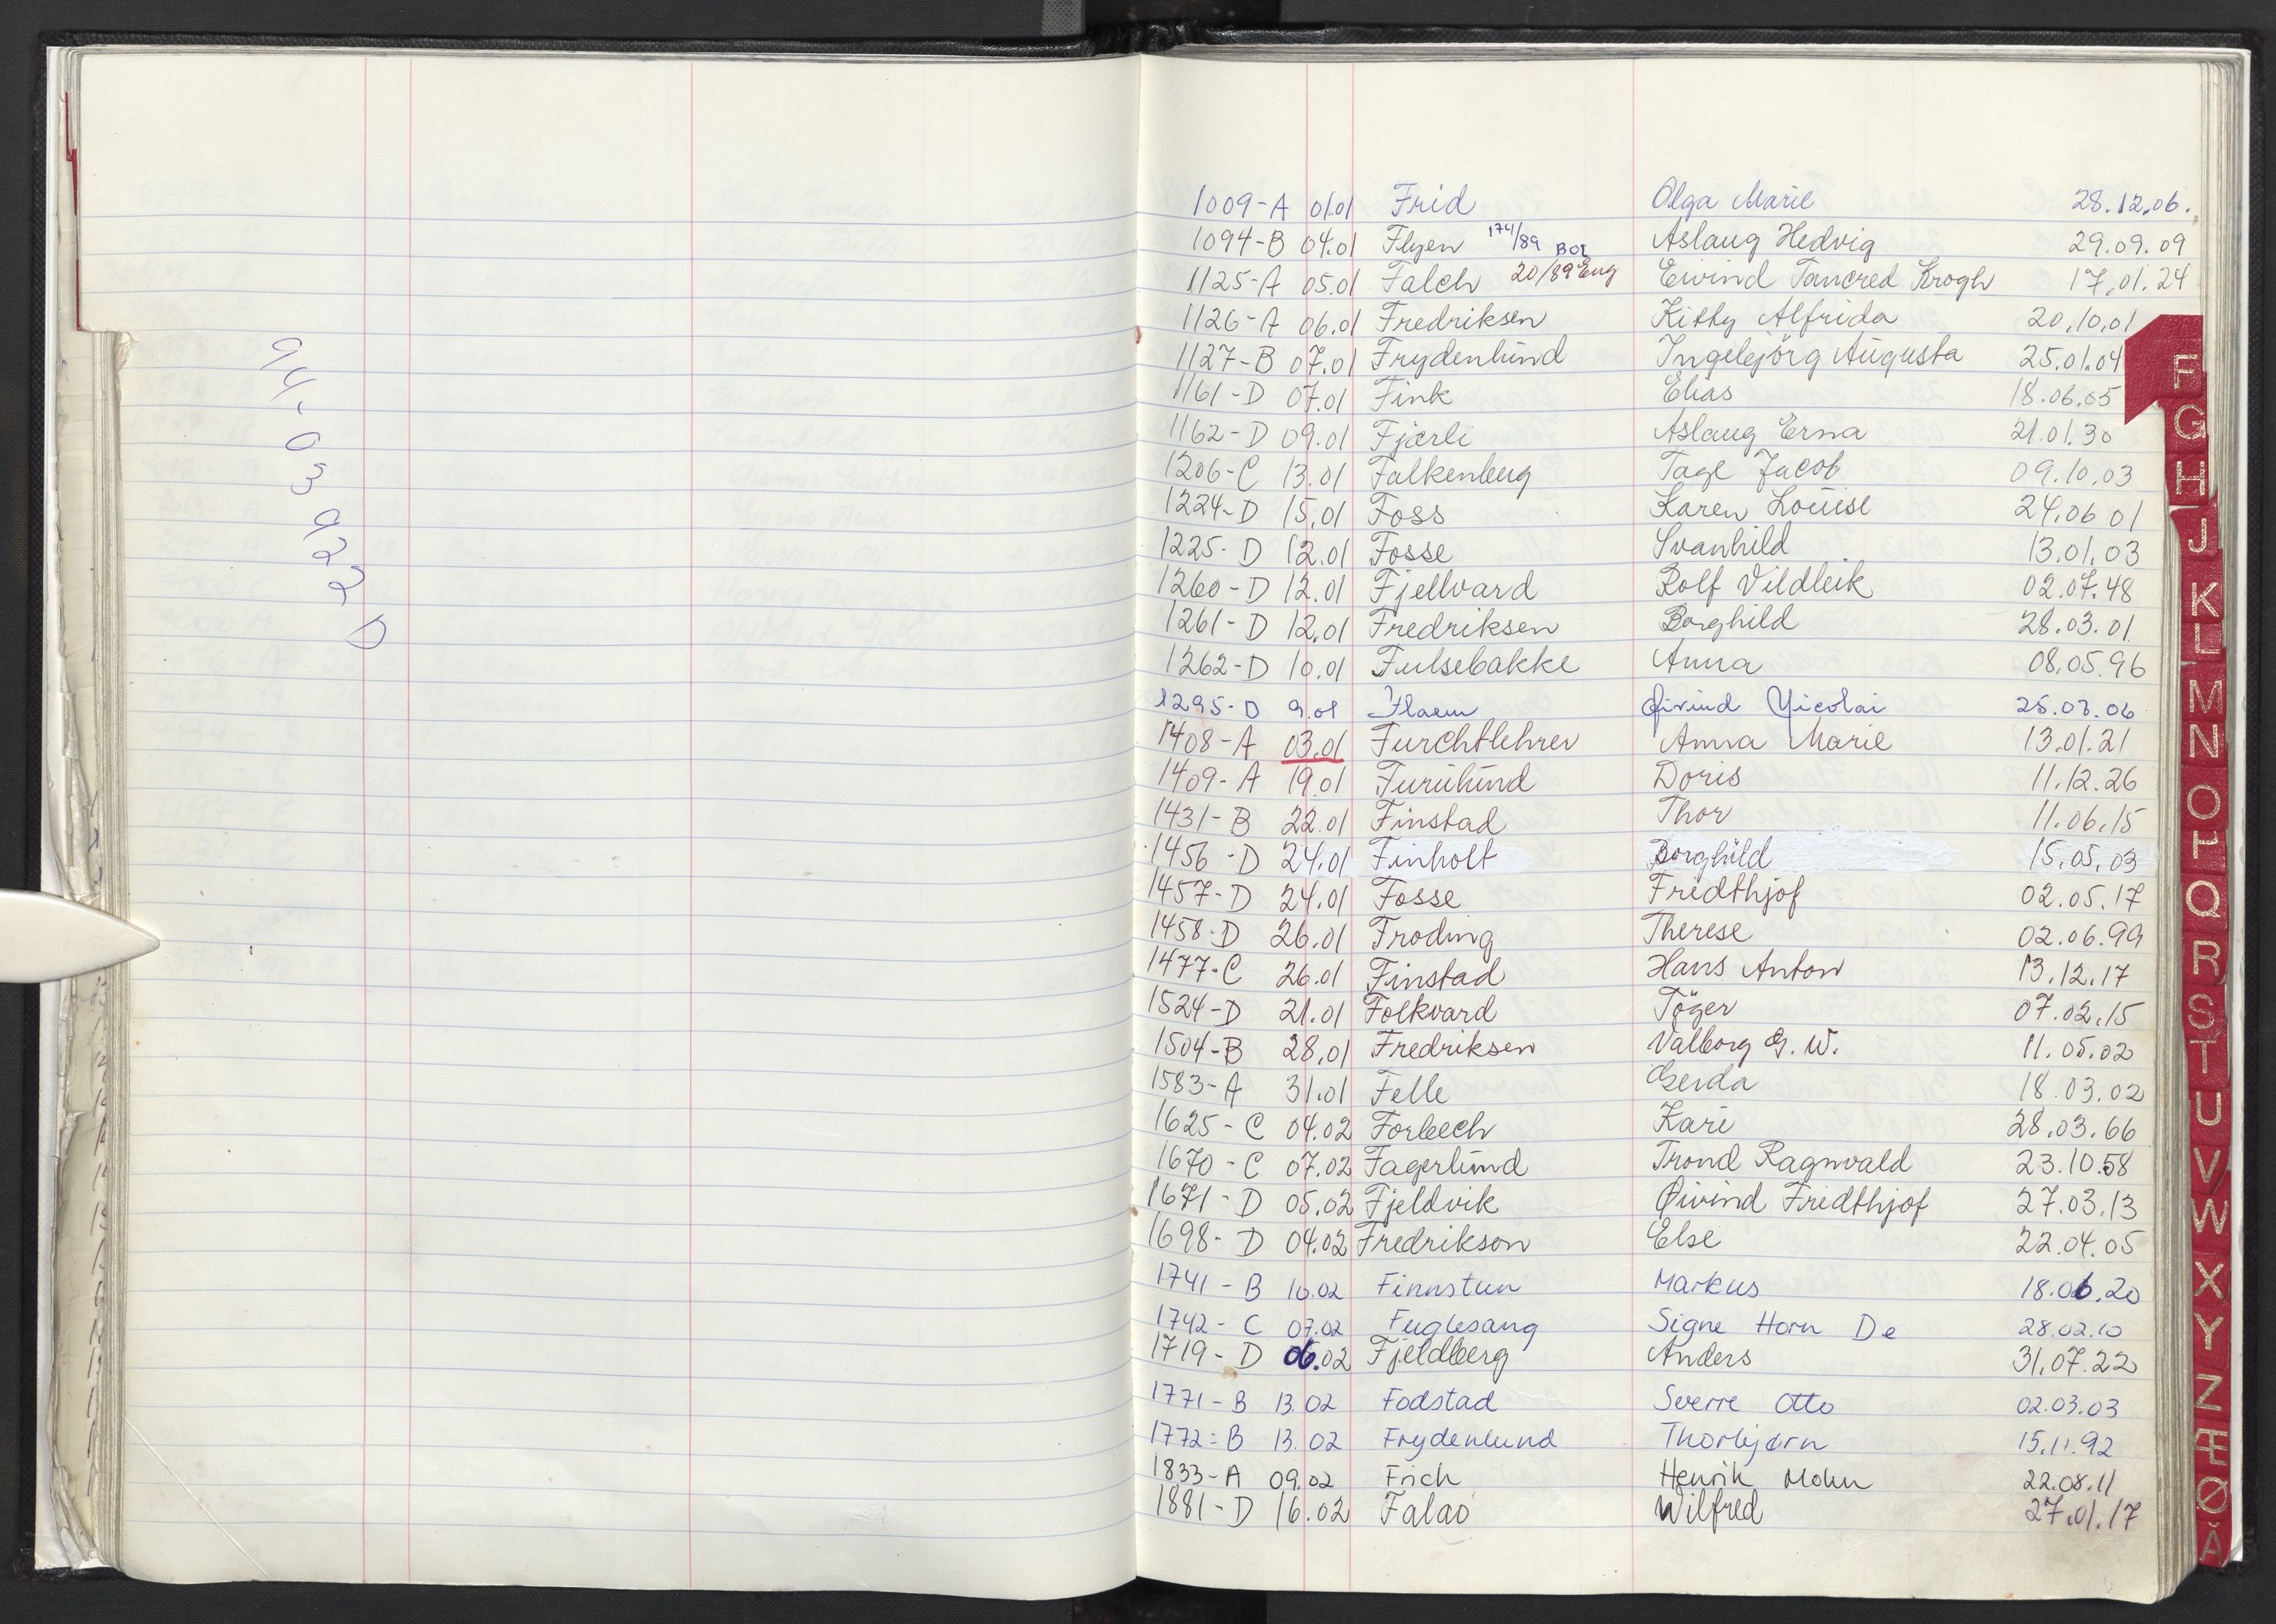 94-03922 D
1009-A 01.01 Frid Olga Marie 28.12.06.
1094-B 04.01 Flyen 174/89 BOI Aslaug Hedvig 29.09.09
1125-A 05.01 Falch 20/89 Eng Eivind Tancred Krogh 17.01.24
1126-A 06.01 Fredriksen Kitty Alfrida 20.10.01
1127-B 07.01 Frydenlund Ingebjörg Augusta 25.01.04
1161-D 07.01 Fink Elias 18.06.05
1162-D 09.01 Fjærli Aslaug Erna 21.01.30
1206-C 13.01 Falkenberg Tage Jacob 09.10.03
1224-D 15.01 Foss Karen Louise 24.06 01
1225-D 12.01 Fosse Svanhild 13.01.03
1260-D 12.01 Fjellvard Rolf Vildleik 02.07.48
1261-D 12.01 Fredriksen Borghild 28.03.01
1262-D 10.01 Fulsebakke Anna 08.05.96
1295-D 9.01 Flaem Øivind Nicolai 25.03.06
1408-A 03.01 Furchtlehrer Anna Marie 13.01.21
1409-A 19.01 Furulund Doris 11.12.26
1431-B 22.01 Finstad Thor 11.06.15
1456-D 24.01 Finholt Borghild 15.05.03
1457-D 24.01 Fosse Fridthjof 02.05.17
1458-D 26.01 Froding Therese 02.06.99
1477-C 26.01 Finstad Hans Anton 13.12.17
1524-D 21.01 Folkvard Töger 07.02.15
1504-B 28.01 Fredriksen Valborg G. W. 11.05.02
1583-A 31.01 Felle Gerda 18.03.02
1625-C 04.02 Forbech Kari 28.03.66
1670-C 07.02 Fagerlund Trond Ragnvald 23.10.58
1671-D 05.02 Fjeldvik Øivind Fridthjof 27.03.13
1698-D 04.02 Fredrikson Else 22.04.05
1741-B 10.02 Finnstun Markus 18.06.20
1742-C 07.02 Fuglesang Signe Horn De 28.02.10
1719-D 06.02 Fjeldberg Anders 31.07.22
1771-B 13.02 Fodstad Sverre Otto 02.03.03
1772-B 13.02 Frydenlund Thorbjørn 15.11.92
1833-A 09.02 Frich Henrik Mohn 22.08.11
1881-D 16.02 Falao Wilfred 27.01.17
F
G
H
J
K
L
M
N
O
P
Q
R
S
T
U
V
W
X
Y
Z
Æ
Ø
Å